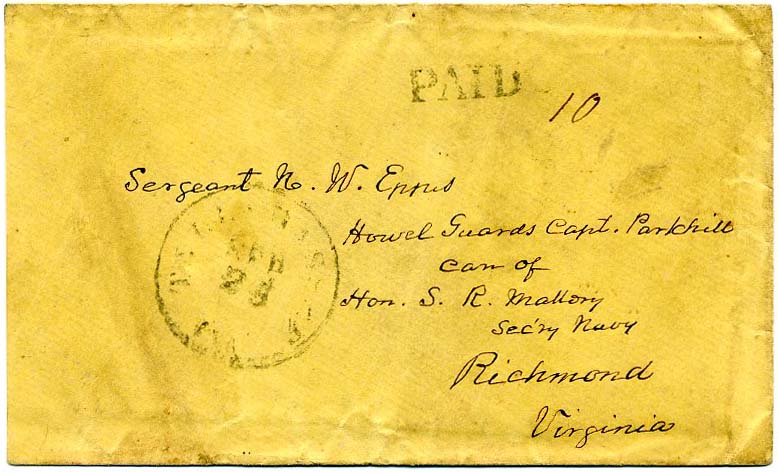 PAID
10
Sergeant N. W. Eppes
Howel Guards Capt. Parkhill
care of
Hon. S. R. Mallory
Sec'ry Navy
Richmond
Virginia
SEP